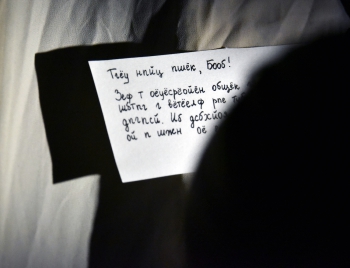 Тгёу нпйц пшёк, Бооб!
Зеф т оёуёсрёойён общёк
шбтпг г вётёелё рпе
дпгпсй. Иб
ой п шжн оё